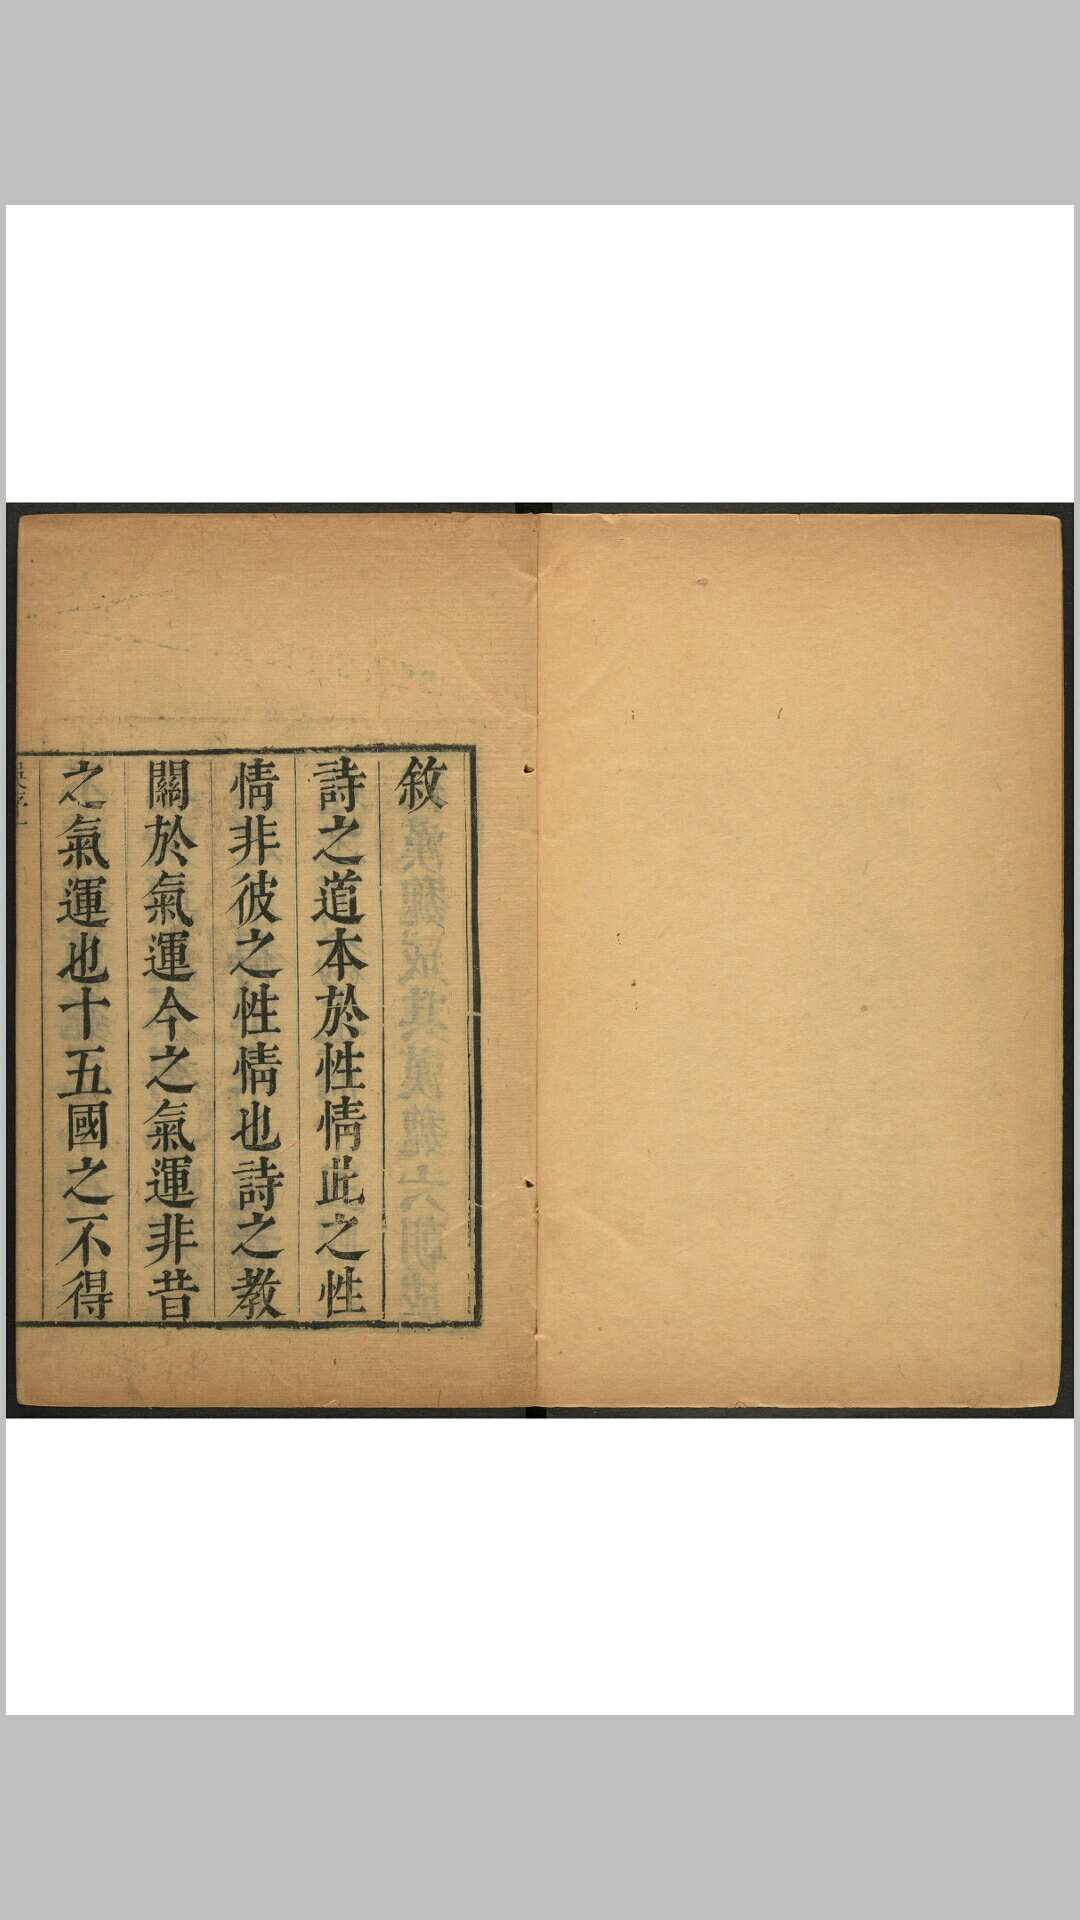 敘
詩之道本於性情此之性
情非彼之性情也詩之教
關於氣運今之氣運非昔
之氣運也十五國之不得